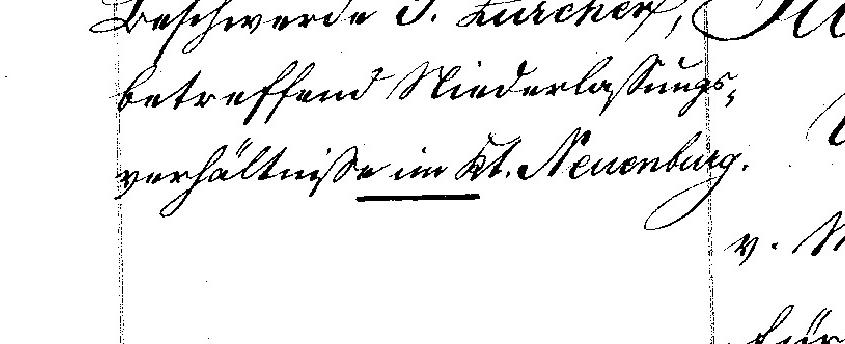 Beschwerde J. Lurcher,
betreffend Niederlassungs-
verhältnisse im Kt. Neuenburg.
v.
für